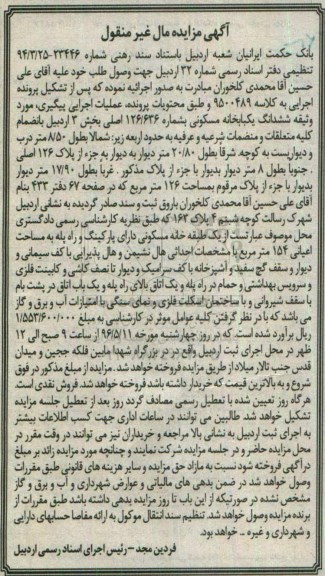 آگهی مزایده مال غیر منقول
بانک حکمت ایرانیان شعبه اردبیل باستناد سند رهنی شماره ۲۳۴۴۶-۹۴/۳/۲۵
تنظیمی دفتر اسناد رسمی شماره ۳۲ اردبیل جهت وصول طلب خود علیه آقای علی
حسین آقا محمدی کلخوران مبادرت به صدور اجرائیه نموده که پس از تشکیل پرونده
اجرایی به کلاسه ۹۵۰۰۴۸۹ و طبق محتویات پرونده، عملیات اجرایی پیگیری، مورد
وثیقه ششدانگ یکبابخانه مسکونی بشماره ۱۲۶/۶۳۶ اصلی بخش ۳ اردبیل بانضمام
کلیه متعلقات و منضمات شرعیه و عرفیه به حدود اربعه زیر: شمالا بطول ۸/۵۰ متر درب
و دیواریست به کوچه. شرقا بطول ۲۰/۸۰ متر دیوار به دیوار به جزء از پلاک ۱۲۶ اصلی
. جنوبا بطول ۸ متر دیوار بدیوار با جزء از پلاک مذکور . غربا بطول ۱۷/۹۰ متر دیوار
بدیوار با جزء از پلاک مرقوم بمساحت ۱۲۶ متر مربع که در صفحه ۶۷ دفتر ۴۳۳ بنام
آقای علی حسین آقا محمدی کلخوران باروق ثبت و سند صادر گردیده به نشانی اردبیل
شهرک رسالت کوچه شبنم ۴ پلاک ۱۶۲ که طبق نظریه کارشناسی رسمی دادگستری
محل موصوف عبارتست از یک طبقه خانه مسکونی دارای پارکینگ و راه پله به مساحت
اعیانی ۱۵۴ متر مربع با مشخصات احداثی هال نشیمن و هال پذیرایی با کف سیمانی و
دیوار و سقف گچ سفید و آشپزخانه با کف سرامیک و دیوار تا نصف کاشی و کابینت فلزی
و سرویس بهداشتی و حمام در راه پله و یک اتاق بالای راه پله و یک باب اتاق در پشت بام
با سقف شیروانی و با ساختمان اسکلت فلزی و نمای سنگی با امتیازات آب و برق و گاز
می باشد که با در نظر گرفتن کلیه عوامل موثر در کارشناسی به مبلغ ۱/۵۵۳/۶۰۰/۰۰۰
ریال برآورد شده است. که در روز چهارشنبه مورخه ۹۶/۵/۱۱ از ساعت ۹ صبح الی ۱۲
ظهر در محل اجرای ثبت اردبیل واقع در در بزرگراه شهدا مابین فلکه ججین و میدان
قدس جنب تالار میلاد از طریق مزایده فروخته خواهد شد. مزایده از مبلغ مذکور در فوق
شروع و به بالاترین قیمت که خریدار داشته باشد فروخته خواهد شد. فروش نقدی است.
هرگاه روز تعیین شده با تعطیل رسمی مصادف گردد روز بعد از تعطیل جلسه مزایده
تشکیل خواهد شد. طالبین می توانند در ساعات اداری جهت کسب اطلاعات بیشتر
به اجرای ثبت اردبیل به نشانی بالا مراجعه و خریداران نیز می توانند در وقت مقرر در
محل مزایده حاضر و در جلسه مزایده شرکت نمایند و چنانچه مورد مزایده زائد بر مبلغ
درآگهی فروخته شود نسبت به مازاد حق مزایده و سایر هزینه های قانونی طبق مقررات
وصول خواهد شد در ضمن بدهی های مالیاتی و عوارض شهرداری و آب و برق و گاز
مشخص نشده در صورتیکه از این باب تا روز مزایده بدهی داشته باشد طبق مقررات از
برنده مزایده وصول خواهد شد. تنظیم سند انتقال موکول به ارائه مفاصا حسابهای دارایی
و شهرداری و غیره ... خواهد بود.
فردین مجد - رئیس اجرای اسناد رسمی اردبیل